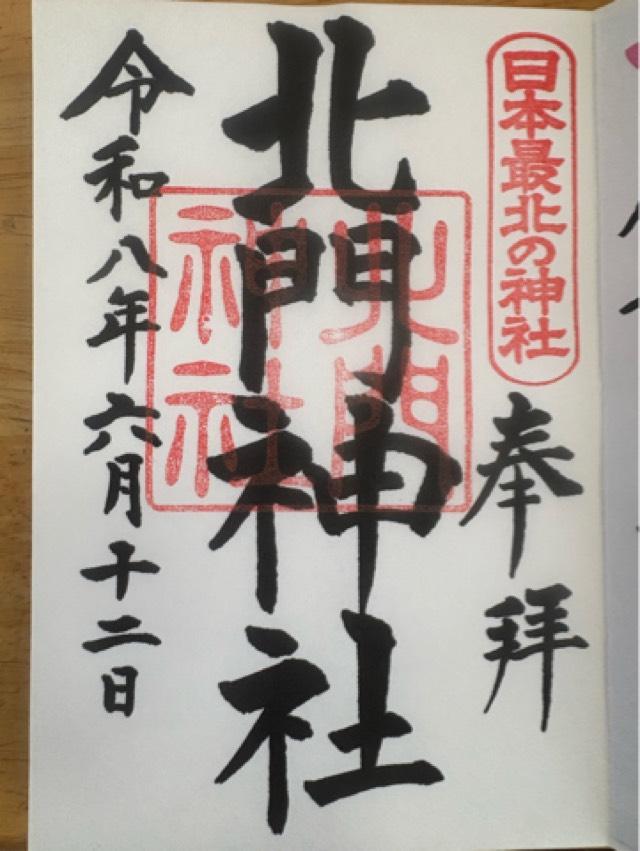 日本最北の神社
奉拝
北門神社
北門
神社
令和八年六月十二日